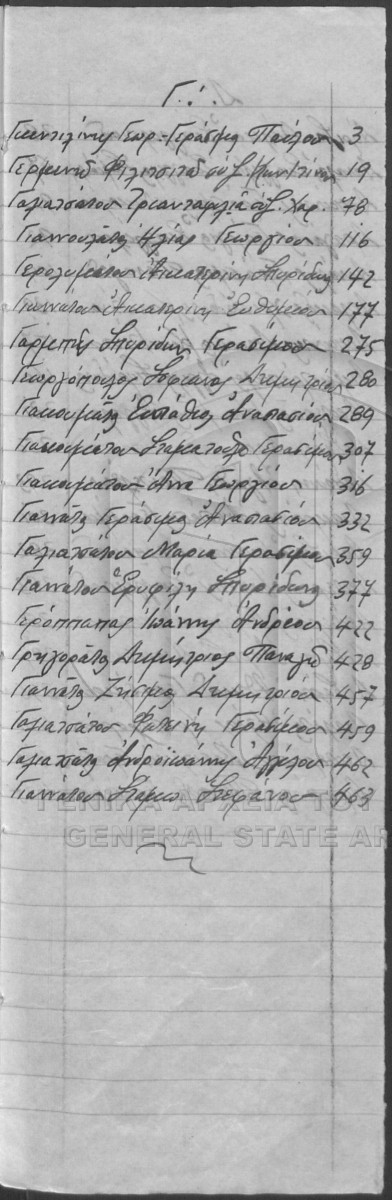 Γ.
Γκεντιλίνης Γεωρ.-Γεράσιμος Παύλου 3
Γερμενῆ 19
Γαλιατσάτου Τριανταφυλιὰ συζ. Χαρ. 78
Γιαννουλάτος Ηλίας Γεωργίου 116
Γερολυμάτου Αἰκατερίνη Σπυρίδωνος 142
Γιαννάτου Αἰκατερίνη Εὐθυμίου 177
Γαρμπῆς Σπυρίδων Γερασίμου 275
Γεωργόπουλος Σοφιανός Δημητρίου 280
Γιακουμάτος Εὐστάθιος Ἀναστασίου 289
Γιακουμάτου Σταματούλα Γερασίμου 307
Γιακουμάτου Ἄννα Γεωργίου 316
Γιαννάτος Γεράσιμος Ἀναστασίου 332
Γαλιατσάτου Μαρία Γερασίμου 359
Γιαννάτου Ἐριφίλη Σπυρίδωνος 377
Γερόππαπας Ἰωάννης Ἀνδρέου 422
Γρηγοράτος Δημήτριος Παναγῆ 428
Γιαννάτος Ζήσιμος Δημητρίου 457
Γαλιατσάτου Φωτεινή Γερασίμου 459
Γαλιατσάτος Ἀνδροϊωάννης Ἀγγέλου 462
Γιαννάτου Σταμω Στεφάνου 463
ΓΕΝΙΚΑ ΑΡΧΕΙΑ ΤΟΥ
GENERAL STATE AR